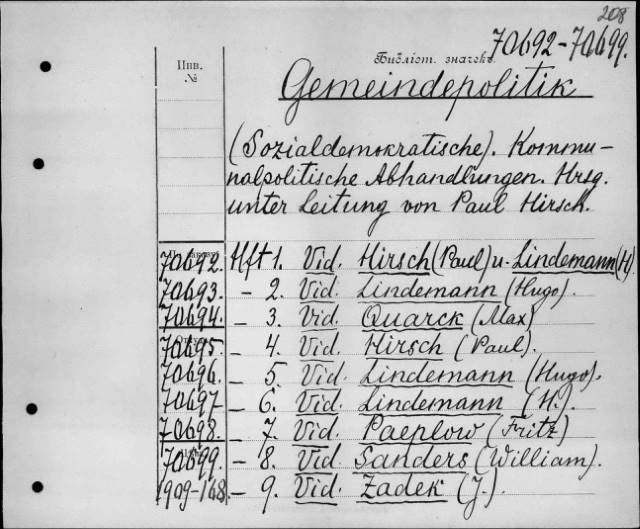 208
70692-70699.
Инв.
№
Библіот. значекъ.
Gemeindepolitik
(Sozialdemokratische). Kommu-
nalpolitische Abhandlungen. Hrsg.
unter Leitung von Paul Hirsch.
70692. Hft 1. Vid. Hirsch (Paul) u. Lindemann (H)
70693. - 2. Vid. Lindemann (Hugo).
70694. - 3. Vid. Quarck (Max)
70695. - 4. Vid. Hirsch (Paul).
70696. - 5. Vid. Lindemann (Hugo).
70697 - 6. Vid. Lindemann (H.).
70698. - 7. Vid. Paeplow (Fritz)
70699. - 8. Vid. Sanders (William).
1909-168. - 9. Vid. Zadek (J.).